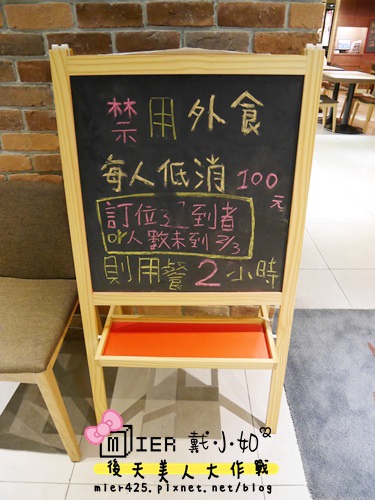 禁用外食
每人低消100元
訂位3"到者
or人數未到2/3
則用餐2小時
MIER 戴小如
後天美人大作戰
mier425.pixnet.net/blog